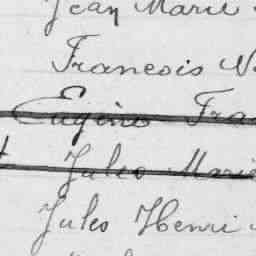 Jean Marie
Francois N
Eugène Fra
Jules Marie
Jules Henri